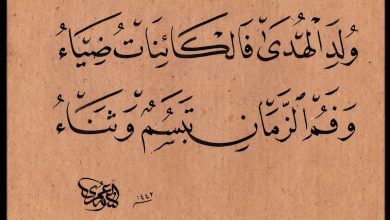 وُلِدَ الْهُدَىٰ فَالْكَائِنَاتُ ضِيَاءُ
وَفَمُ الزَّمَانِ تَبَسُّمٌ وَثَنَاءُ
١٤٤٢